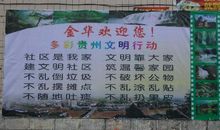 金华欢迎您!
多彩贵州文明行动
社区是我家 文明靠大家
建文明社区 筑温馨家园
不乱倒垃圾 不破坏公物
不乱摆摊点 不乱涂乱贴
不随地吐痰 不乱扔果皮